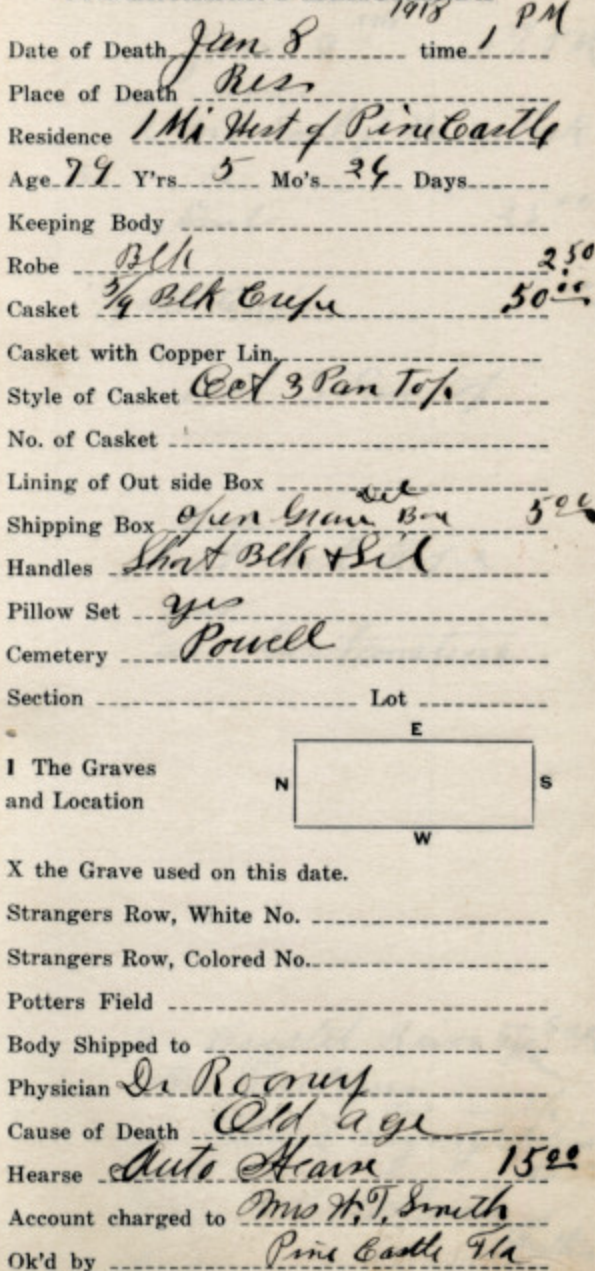 1918 PM
Date of Death Jan 8 time 1
Place of Death Res
Residence 1 Mi West of Pine Castle
Age 79 Y'rs 5 Mo's 26 Days
Keeping Body
Robe Blk 2.50
Casket 5/9 Blk Crepe 50.00
Casket with Copper Lin.
Style of Casket Oct 3 Pan Top
No. of Casket
Lining of Out side Box
Shipping Box open Grave Del Box 5.00
Handles Short Blk & Sil
Pillow Set yes
Cemetery Powell
Section Lot
E
1 The Graves
and Location
N S
W
X the Grave used on this date.
Strangers Row, White No.
Strangers Row, Colored No.
Potters Field
Body Shipped to
Physician Dr Rooney
Cause of Death Old age
Hearse Auto Hearse 15.00
Account charged to Mrs W.T. Smith
Ok'd by Pine Castle Fla